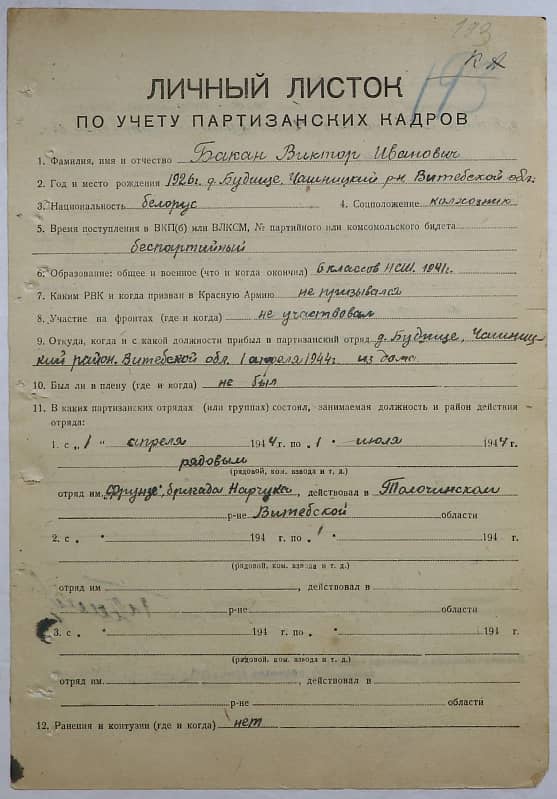 193
КА
195
ЛИЧНЫЙ ЛИСТОК
ПО УЧЕТУ ПАРТИЗАНСКИХ КАДРОВ
1. Фамилия, имя и отчество Бакан Виктор Иванович
2. Год и место рождения 1926г. д. Будище, Чашницкий р-н Витебской обл.
3. Национальность белорус 4. Соцположение колхозник
5. Время поступления в ВКП(б) или ВЛКСМ, № партийного или комсомольского билета
беспартийный
6. Образование: общее и военное (что и когда окончил) 6 классов НСШ. 1941г.
7. Каким РВК и когда призван в Красную Армию не призывался
8. Участие на фронтах (где и когда) не участвовал
9. Откуда, когда и с какой должности прибыл в партизанский отряд д. Будище, Чашниц-
кий район. Витебской обл. 1 апреля 1944г. из дома
10. Был ли в плену (где и когда) не был
11. В каких партизанских отрядах (или группах) состоял, занимаемая должность и район действия
отряда:
1. с „1" апреля 1944 г. по „1" июля 1944 г.
рядовым
(рядовой, ком. взвода и т. д.)
отряд им. Фрунзе, бригада Нарчука, действовал в Толочинском
р-не Витебской области
2. с „ " 194 г. по „1" 194 г.
(рядовой, ком. взвода и т. д.)
отряд им. , действовал в
р-не области
3. с „ " 194 г. по „ " 194 г.
(рядовой, ком. взвода и т. д.)
отряд им. , действовал в
р-не области
12. Ранения и контузии (где и когда) нет